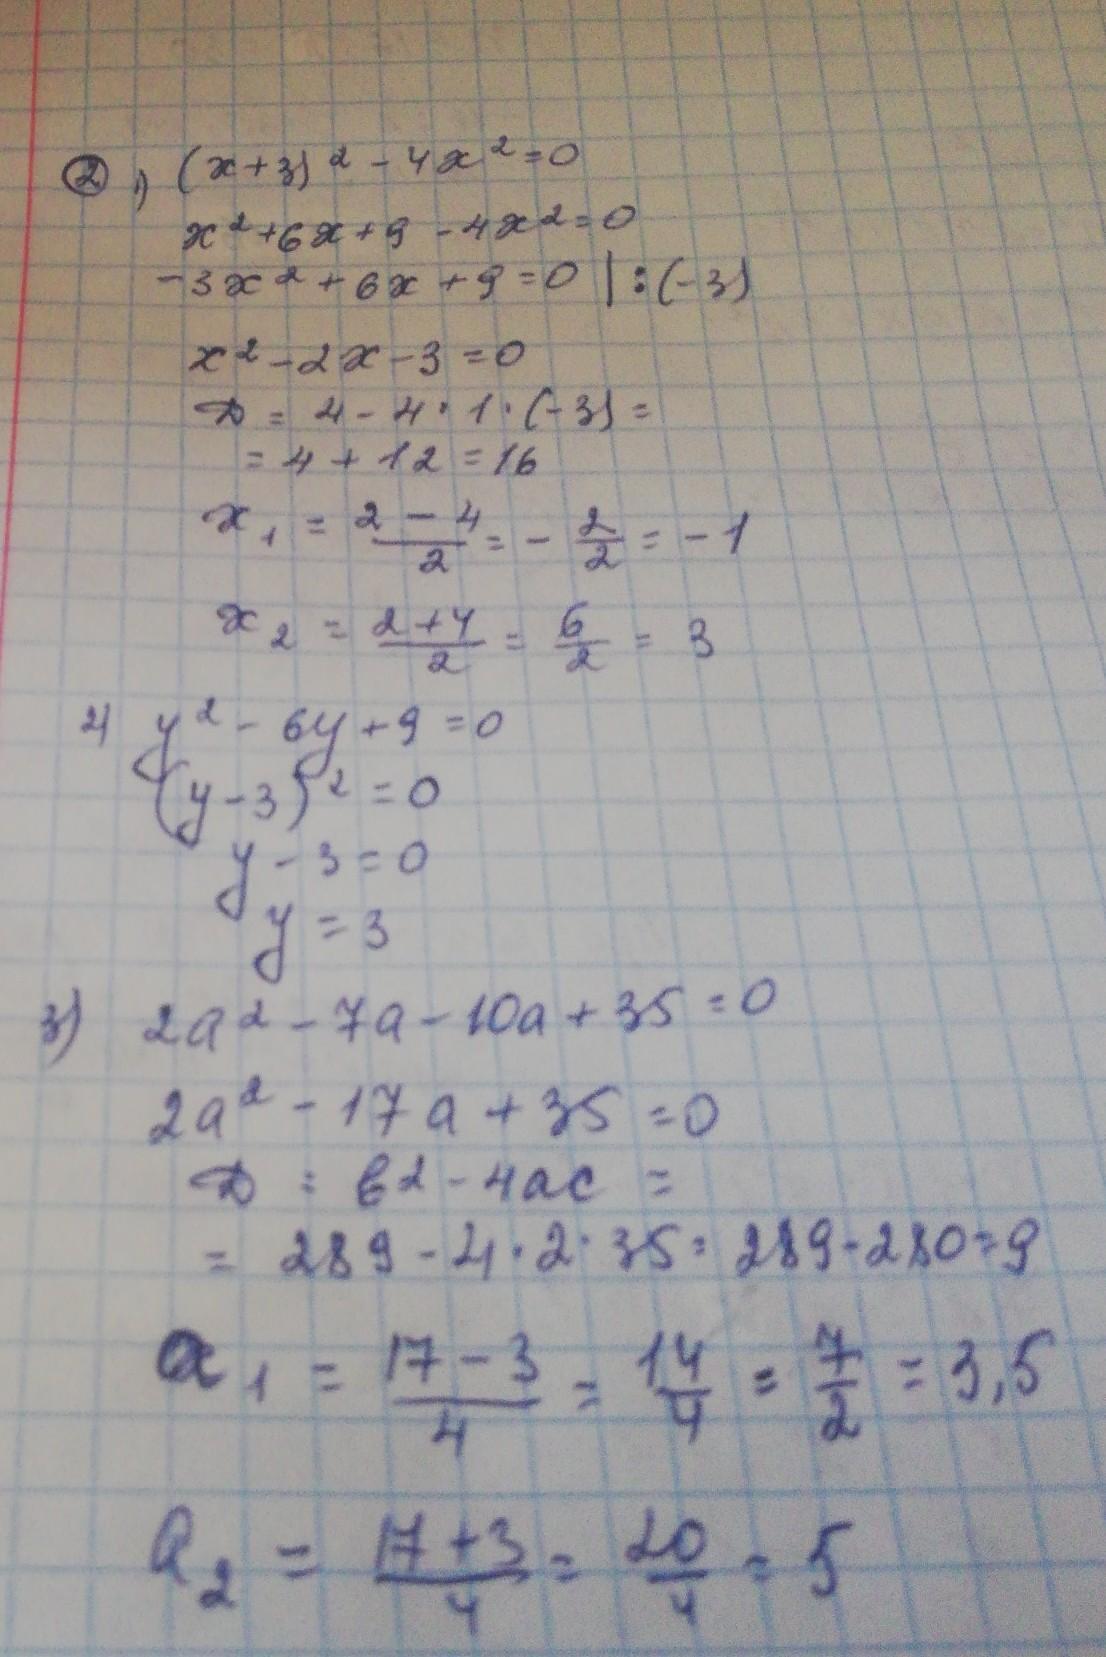 ② 1) (x+3)² - 4x² = 0
x² + 6x + 9 - 4x² = 0
-3x² + 6x + 9 = 0 | : (-3)
x² - 2x - 3 = 0
D = 4 - 4 · 1 · (-3) =
= 4 + 12 = 16
x₁ = (2 - 4)/2 = - 2/2 = -1
x₂ = (2+4)/2 = 6/2 = 3
2) y² - 6y + 9 = 0
(y - 3)² = 0
y - 3 = 0
y = 3
3) 2a² - 7a - 10a + 35 = 0
2a² - 17a + 35 = 0
D = b² - 4ac =
= 289 - 4 · 2 · 35 = 289 - 280 = 9
a₁ = (17 - 3)/4 = 14/4 = 7/2 = 3,5
a₂ = (17 + 3)/4 = 20/4 = 5